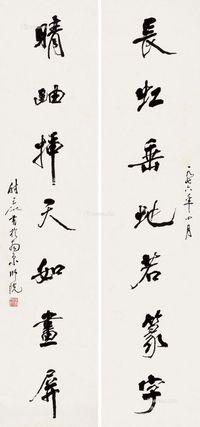 長虹垂地若篆字
一九七六年
晴岫插天如畫屏
尉天池書於南京师院